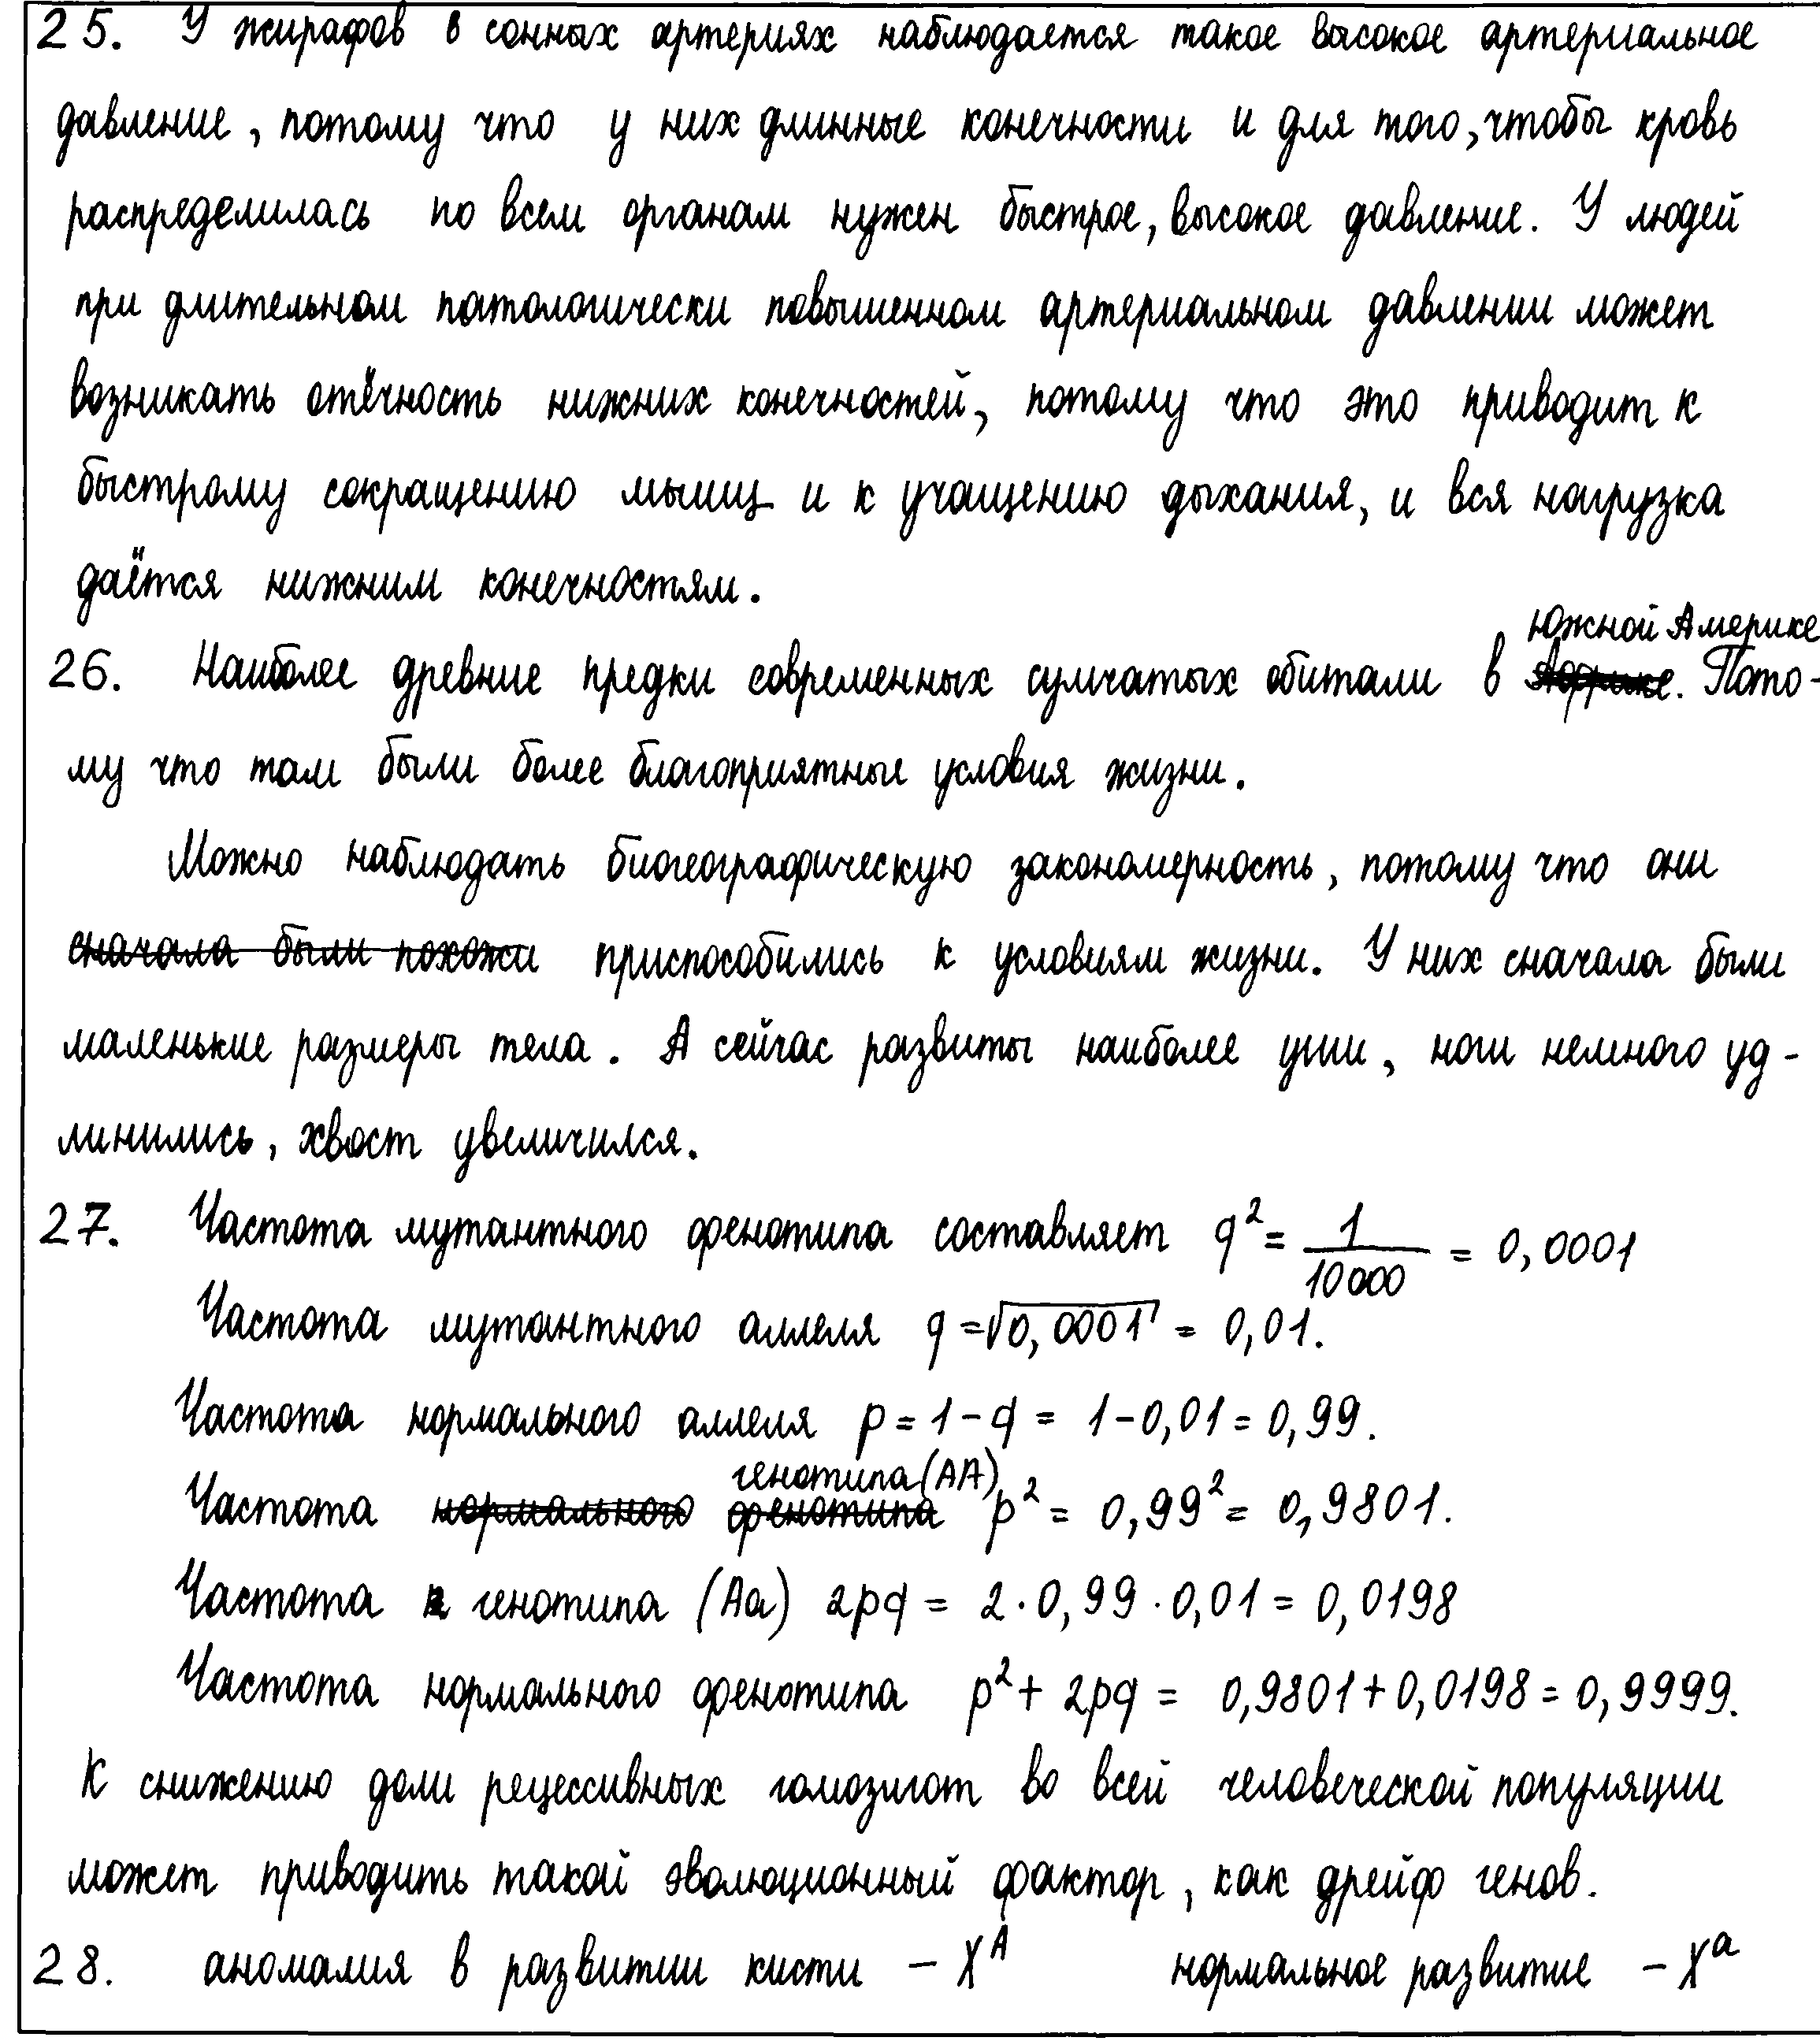 25. У жирафов в сонных артериях наблюдается такое высокое артериальное
давление, потому что у них длинные конечности и для того, чтобы кровь
распределилась по всем органам нужен быстрое, высокое давление. У людей
при длительном патологически повышенном артериальном давлении может
возникать отёчность нижних конечностей, потому что это приводит к
быстрому сокращению мышц и к учащению дыхания, и вся нагрузка
даётся нижним конечностям.
Южной Америке
26. Наиболее древние предки современных сумчатых обитали в Африке. Пото-
му что там были более благоприятные условия жизни.
Можно наблюдать биогеографическую закономерность, потому что они
сначала были похожи приспособились к условиям жизни. У них сначала были
маленькие размеры тела. А сейчас развиты наиболее уши, ноги немного уд-
линились, хвост увеличился.
27. Частота мутантного фенотипа составляет q² = 1/10000 = 0,0001
Частота мутантного аллеля q = √0,0001 = 0,01.
Частота нормального аллеля p = 1 - q = 1 - 0,01 = 0,99.
генотипа (АА)
Частота нормального фенотипа p² = 0,99² = 0,9801.
Частота генотипа (Аа) 2pq = 2 · 0,99 · 0,01 = 0,0198
Частота нормального фенотипа p² + 2pq = 0,9801 + 0,0198 = 0,9999.
К снижению доли рецессивных гомозигот во всей человеческой популяции
может приводить такой эволюционный фактор, как дрейф генов.
28. аномалия в развитии кисти - Xᴬ нормальное развитие - Xᵃ